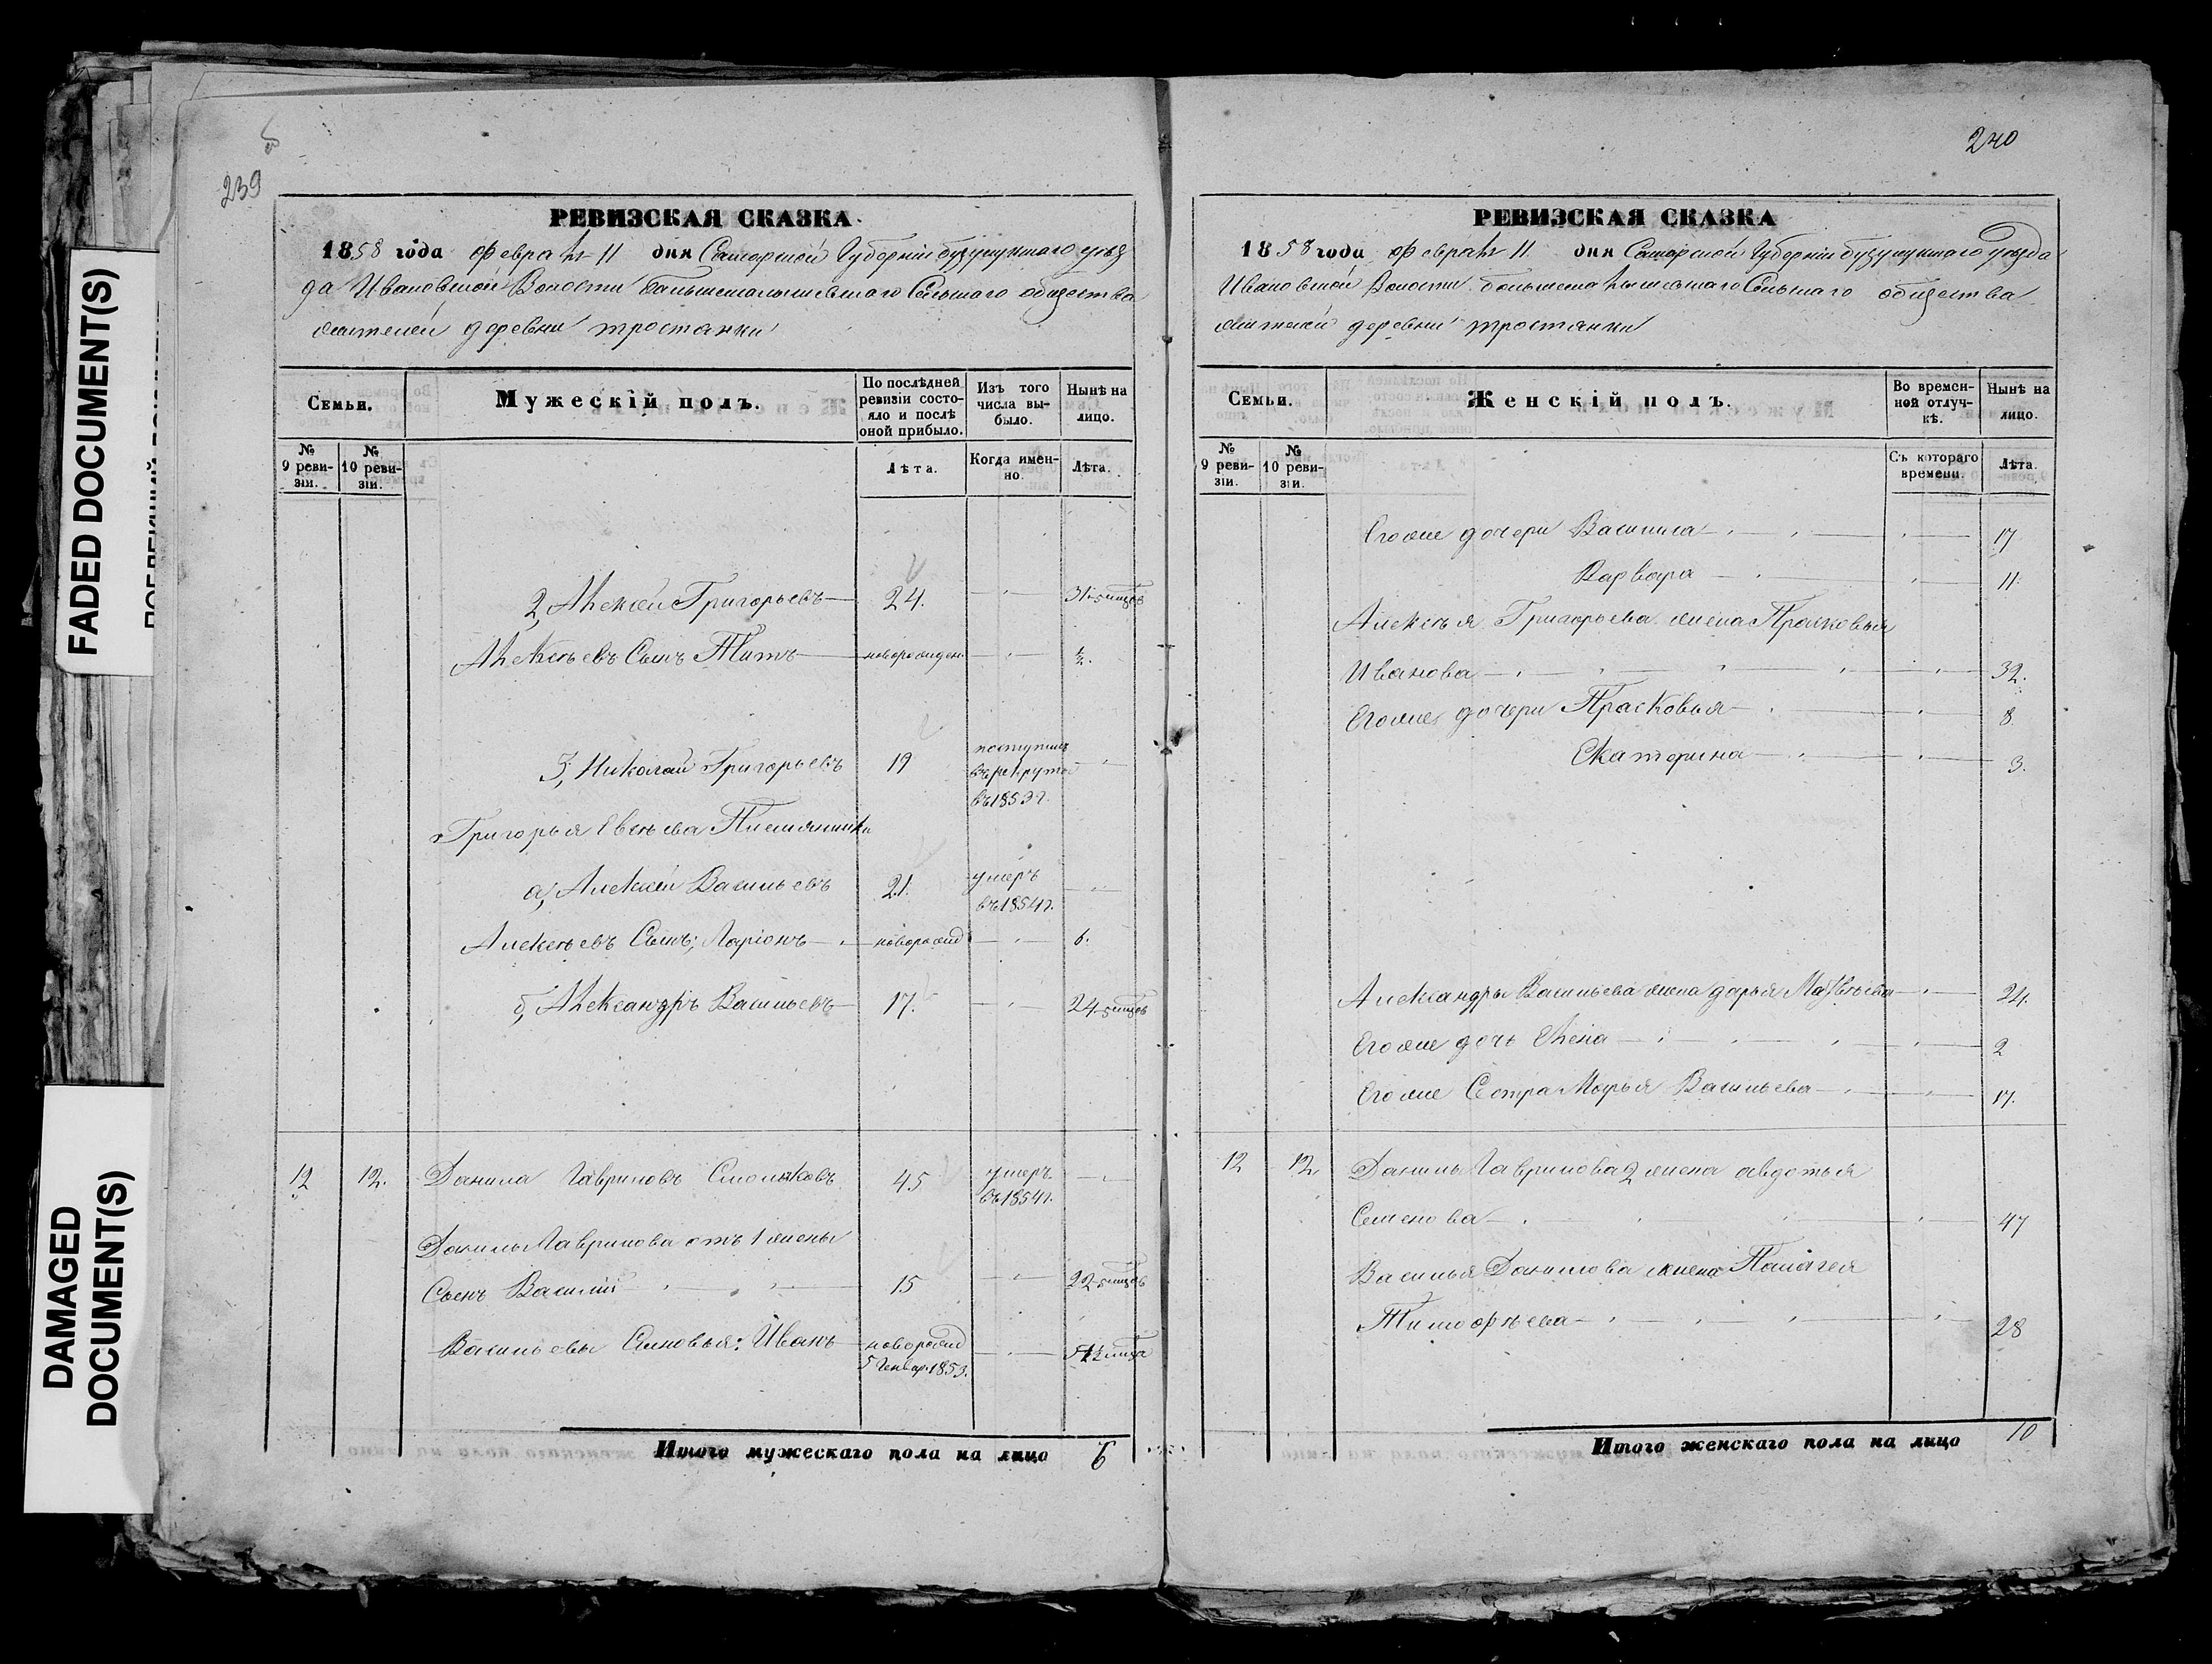 FADED DOCUMENT(S)
DAMAGED
DOCUMENT(S)
239
РЕВИЗСКАЯ СКАЗКА.
1858 года февраля 11 дня Самарской Губернiи бузулукскаго уѣз
да Ивановской Волости Большемалышевскаго Сельскаго общества
жителей деревни тростянки
Семьи.
Мужескiй полъ.
По послѣдней
ревизiи состо-
яло и послѣ
оной прибыло.
Изъ того
числа вы-
было.
Нынѣ на
лицо.
№
9 реви-
зiи.
№
10 реви-
зiи.
Лѣта.
Когда имен-
но.
Лѣта.
2, Алексѣй Григорьевъ 24. 31-5 мцовъ
Алексѣевъ Сынъ Титъ новорожден. ½.
3, Николай Григорьевъ 19 поступилъ
въ рекруты
въ 1853 г.
Григорья Евсѣева Племянники
а, Алексѣй Васильевъ 21. умеръ
въ 1854 г.
Алексѣевъ Сынъ; Ларiонъ новорожд 6.
б, Александръ Васильевъ 17. 24-5 мцовъ
12 12. Данила Гавриловъ Смольковъ 45 умеръ
въ 1854 г.
Данилы Гаврилова отъ 1 жены
Сынъ Василiй 15 22-5 мцовъ
Васильевы Сыновья: Иванъ новорожд
5 Генвар. 1853.
Итого мужескаго пола на лицо 6
240
РЕВИЗСКАЯ СКАЗКА
1858 года февраля 11 дня Самарской Губернiи бузулукскаго уѣзда
Ивановской Волости большемалышевскаго Сельскаго общества
жителей деревни тростянки
Семьи.
Женскiй полъ.
Во времен-
ной отлуч-
кѣ.
Нынѣ на
лицо.
№
9 реви-
зiи.
№
10 реви-
зiи.
Съ котораго
времени.
Лѣта.
Егоже дочери Василиса 17
Варвара 11.
Алексѣя Григорьева жена Прасковья
Иванова 32.
Егоже дочери Прасковья 8
Екатерина 3.
Александры Васильева жена дарья Матвѣева 24.
Егоже дочь Елена 2
Егоже Сестра Марья Васильева 17.
12 12. Данилы Гаврилова 2 жена авдотья
Семенова 47
Василья Данилова жена Палагея
Тимофѣева 28
Итого женскаго пола на лицо 10